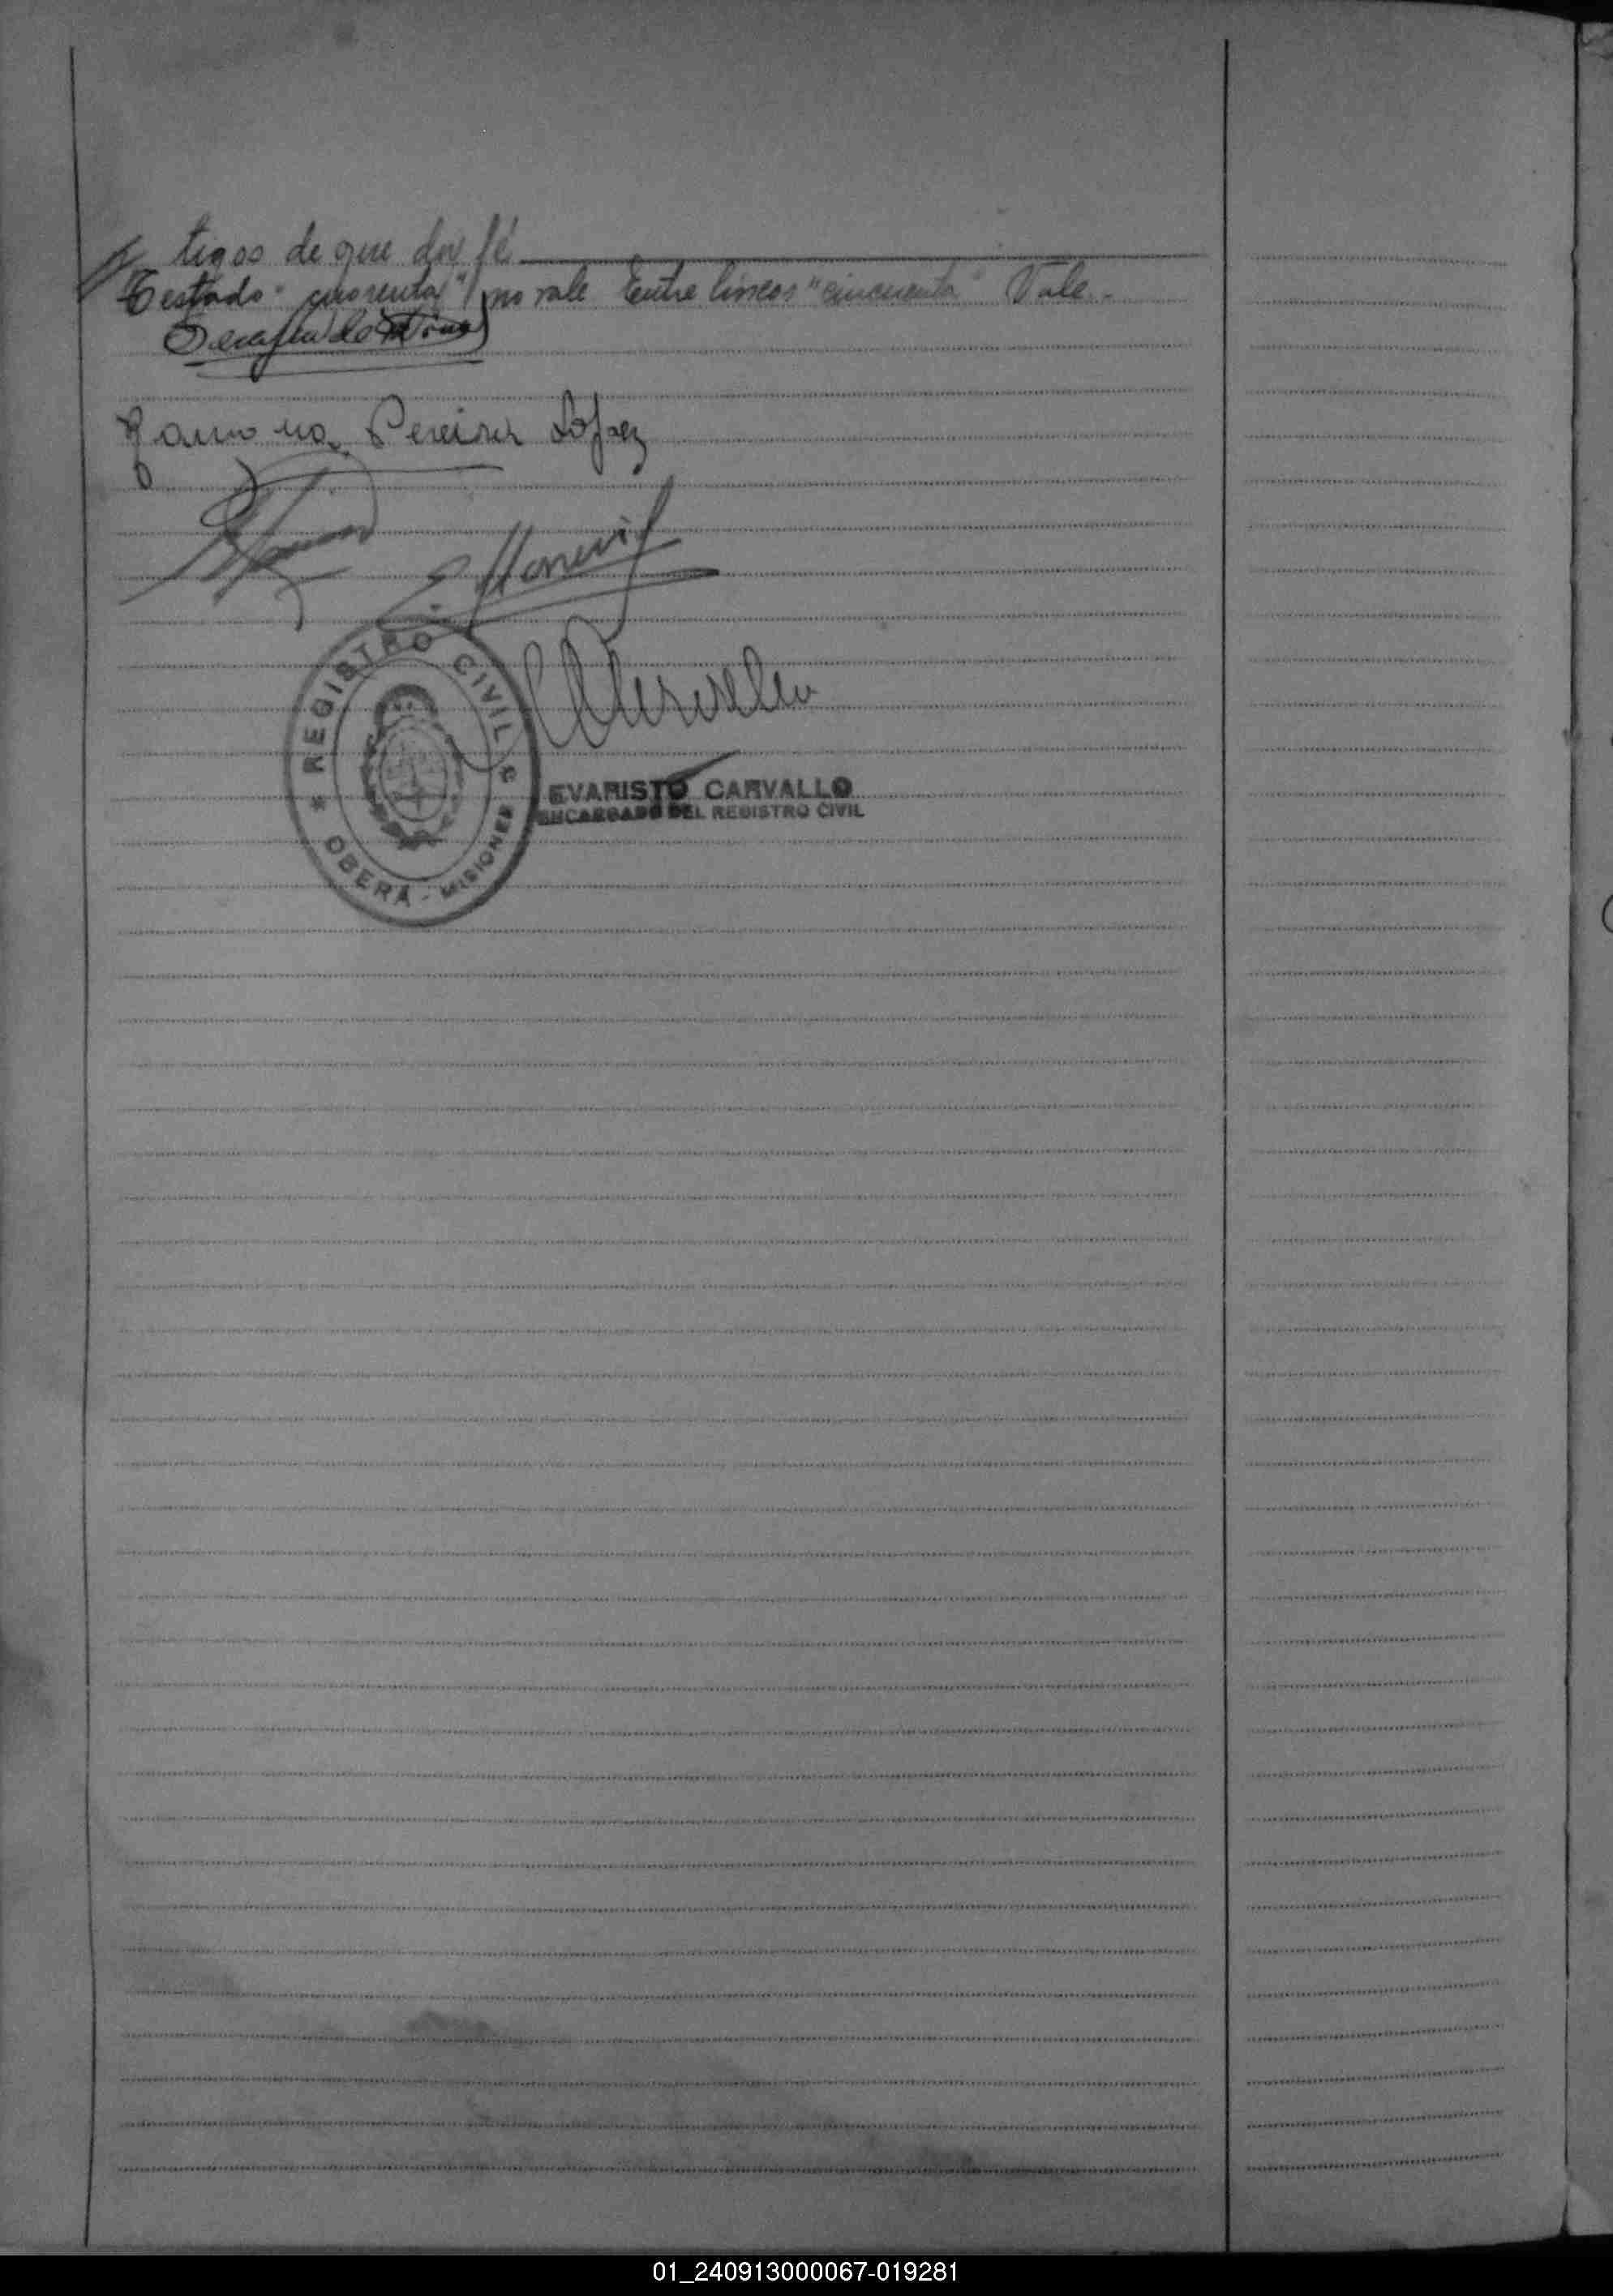 // tigos de que doy fé.
Testado "cuarenta" no vale Entre lineas "cincuenta" Vale.-
Serafin de
Ramona Pereira Lopez
E.
REGISTRO CIVIL
OBERÁ - MISIONES
EVARISTO CARVALLO
ENCARGADO DEL REGISTRO CIVIL
01_240913000067-019281